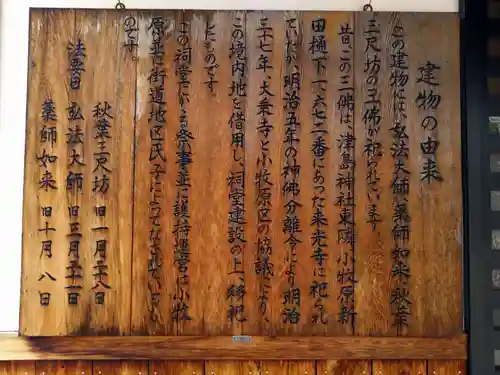 建物の由来
この建物には、弘法大師、薬師如来、秋葉
三尺坊の三佛が祀られています
昔、この三佛は、津島神社東隣、小牧原新
田樋下一六七二番にあった来光寺に祀られ
ていたが、明治五年の神佛分離令により、明治
三十七年、大乗寺と小牧原区の協議により
この境内地を借用し、祠堂建設の上、移祀
したものです。
この祠堂でかる祭事並に護持運営は小牧
原並に街道地区氏子によってなされているも
のです。
法要日
秋葉三尺坊 旧一月二十八日
弘法大師 旧三月二十一日
薬師如来 旧十月八日